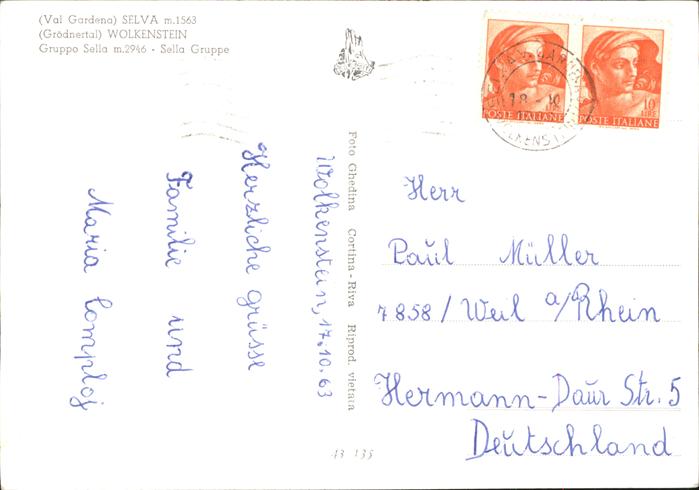 (Val Gardena) SELVA m.1563
(Grödnertal) WOLKENSTEIN
Gruppo Sella m.2946 - Sella Gruppe
10 LIRE
POSTE ITALIANE
10 LIRE
POSTE ITALIANE
18 - 10
Wolkenstein, 17.10.63
Herzliche grüsse
Familie und
Maria Comploj
Foto Ghedina Cortina-Riva Riprod. vietata
Herr
Paul Müller
7858/ Weil a/Rhein
Hermann-Daur Str. 5
Deutschland
13 135